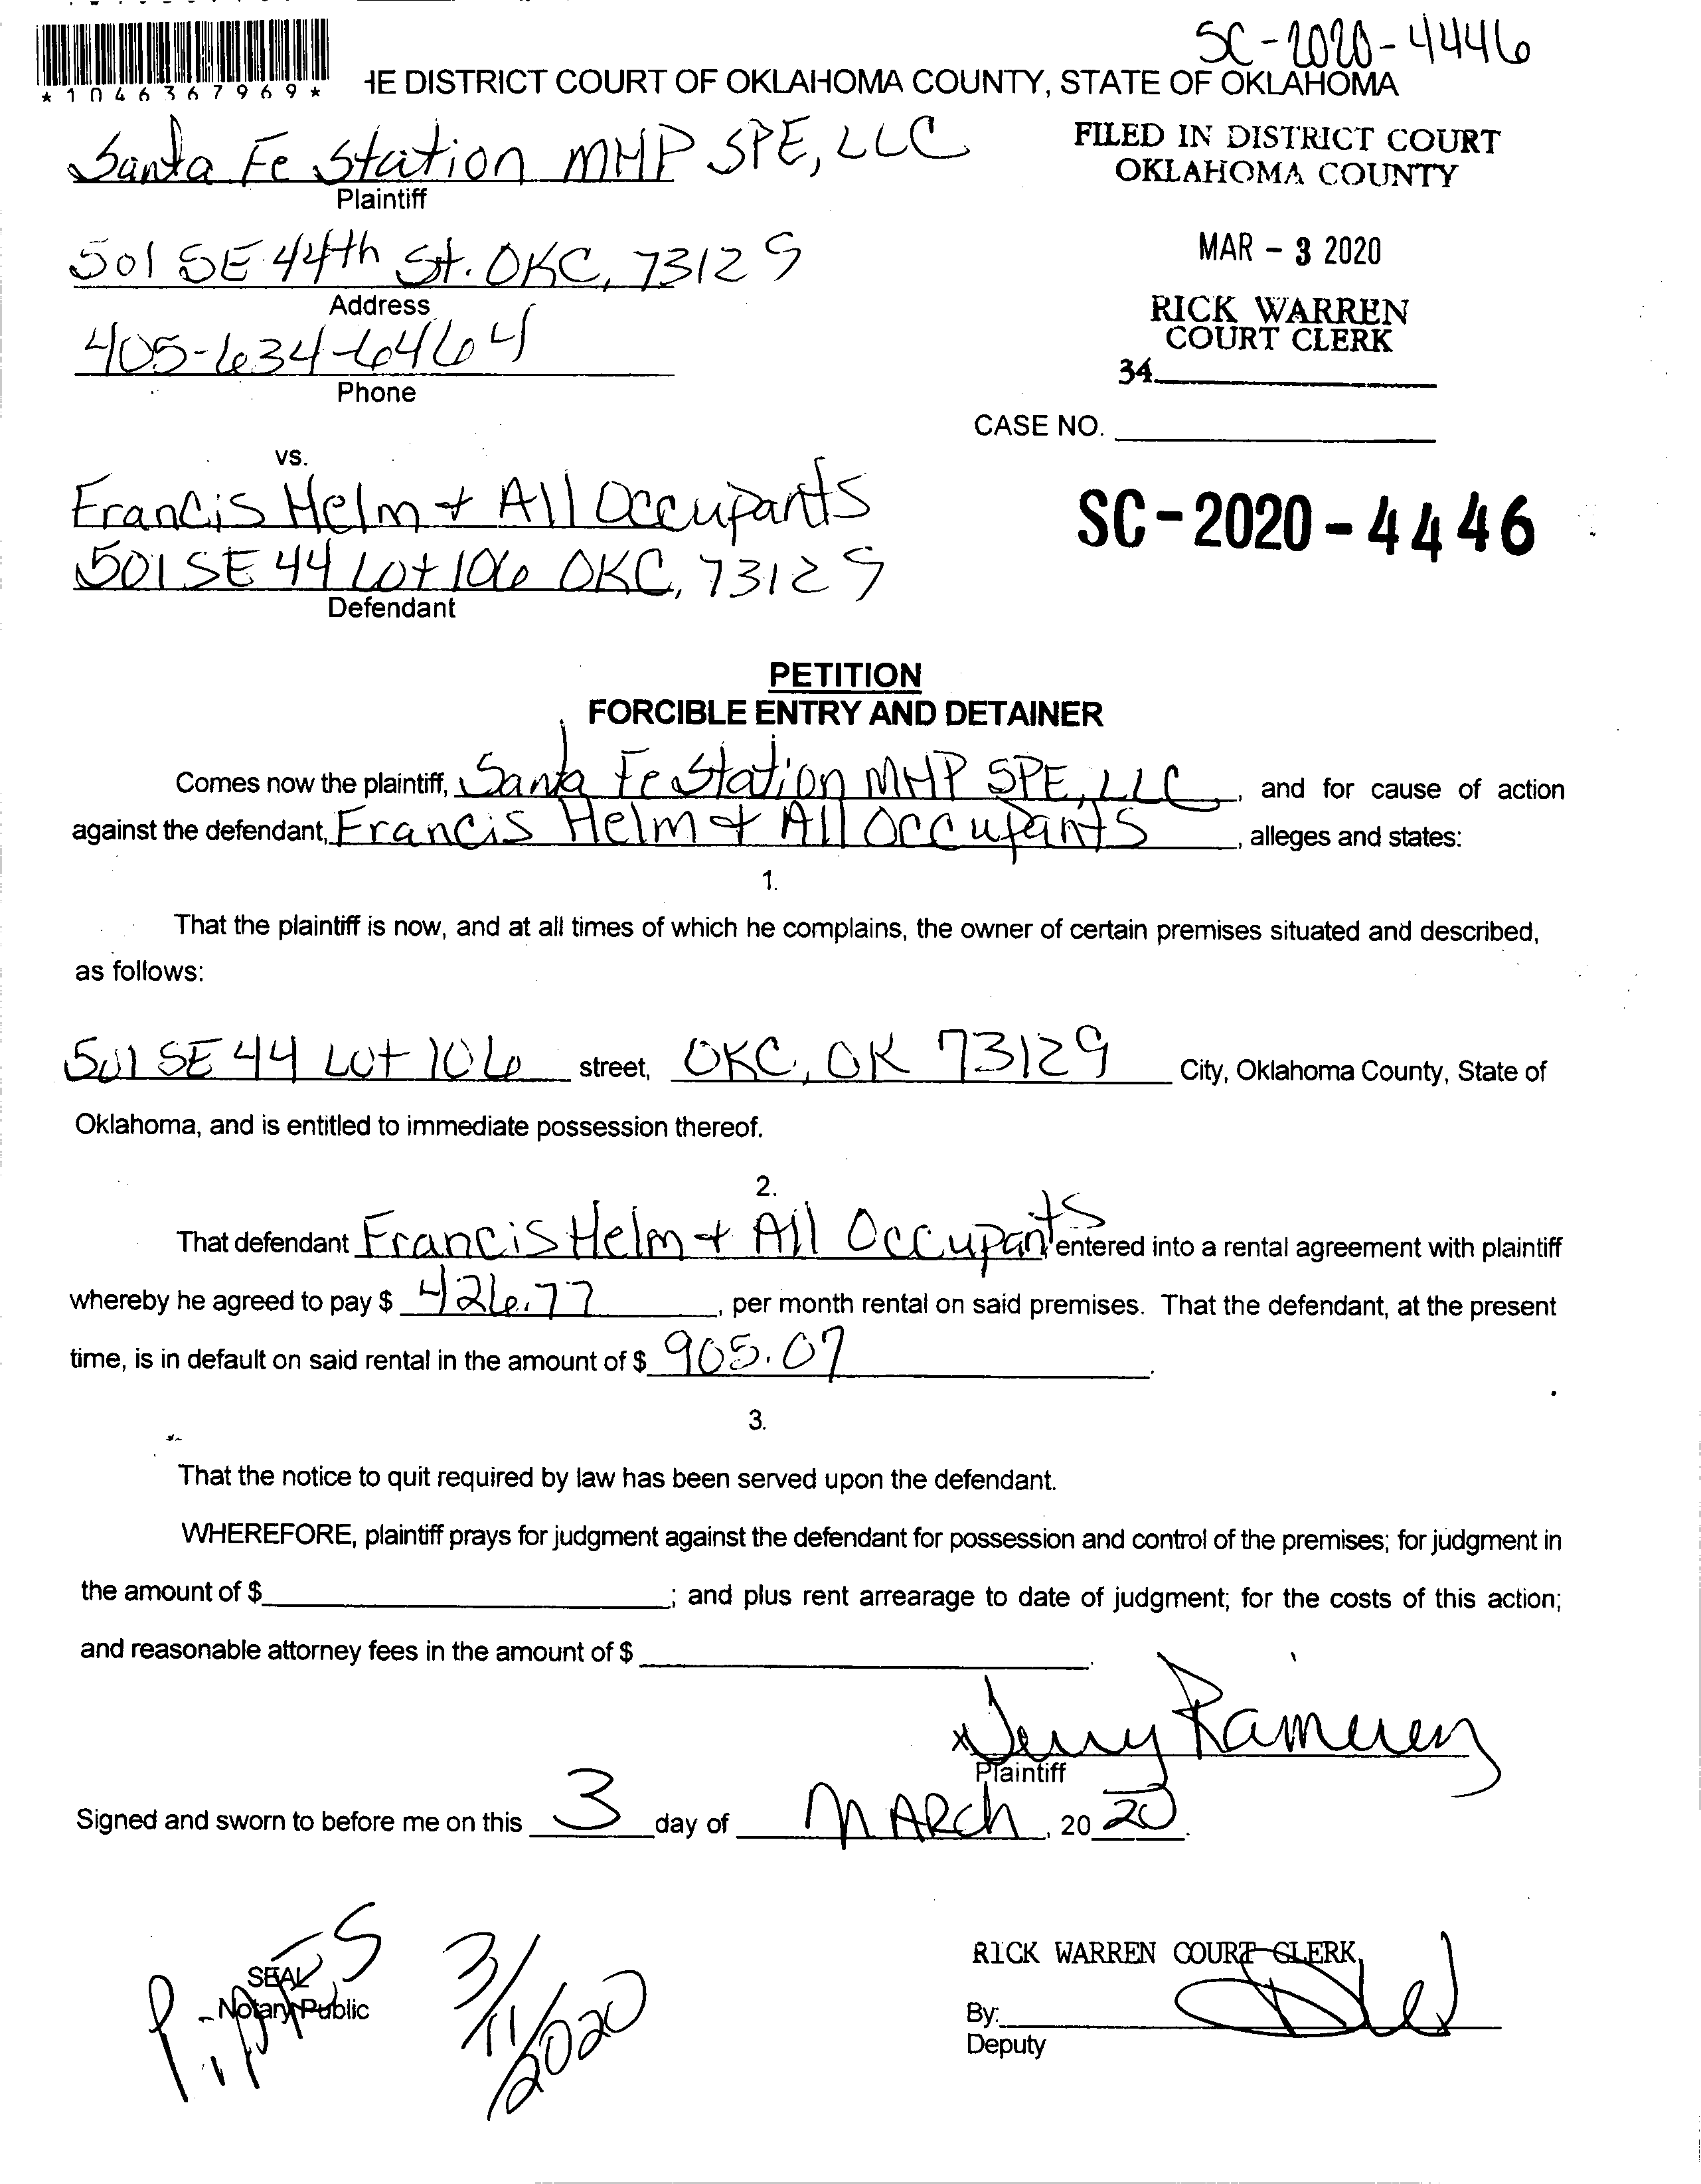 SC-2020-4446
*1046367969*
HE DISTRICT COURT OF OKLAHOMA COUNTY, STATE OF OKLAHOMA
Santa Fe Station MHP SPE, LLC
Plaintiff
FILED IN DISTRICT COURT
OKLAHOMA COUNTY
501 SE 44th St. OKC, 73129
Address
MAR - 3 2020
405-634-6464
Phone
RICK WARREN
COURT CLERK
34
CASE NO.
vs.
Francis Helm + All Occupants
501 SE 44 Lot 106 OKC, 73129
Defendant
SC-2020-4446
PETITION
FORCIBLE ENTRY AND DETAINER
Comes now the plaintiff, Santa Fe Station MHP SPE, LLC, and for cause of action
against the defendant, Francis Helm + All Occupants, alleges and states:
1.
That the plaintiff is now, and at all times of which he complains, the owner of certain premises situated and described,
as follows:
501 SE 44 Lot 106 street, OKC, OK 73129 City, Oklahoma County, State of
Oklahoma, and is entitled to immediate possession thereof.
2.
That defendant Francis Helm + All Occupants entered into a rental agreement with plaintiff
whereby he agreed to pay $ 426.77, per month rental on said premises. That the defendant, at the present
time, is in default on said rental in the amount of $ 905.07.
3.
That the notice to quit required by law has been served upon the defendant.
WHEREFORE, plaintiff prays for judgment against the defendant for possession and control of the premises; for judgment in
the amount of $ ; and plus rent arrearage to date of judgment; for the costs of this action;
and reasonable attorney fees in the amount of $ .
x Jerry Ramirez
Plaintiff
Signed and sworn to before me on this 3 day of MARCh, 20 20.
SEAL
Notary Public
3/11/2020
RICK WARREN COURT CLERK
By:
Deputy